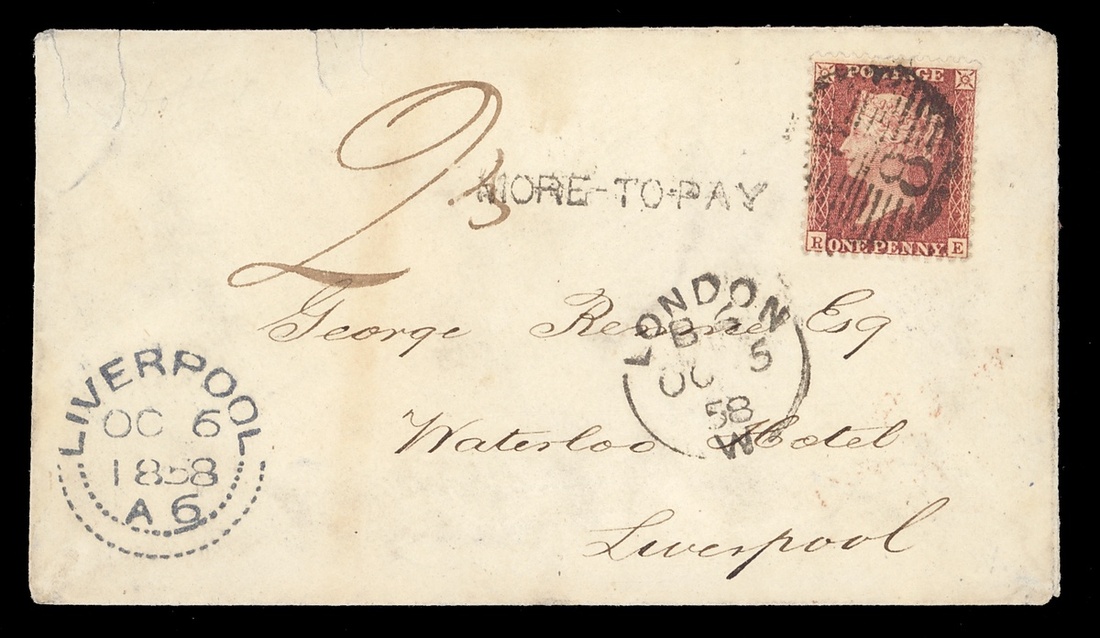 POSTAGE
8
R ONE PENNY E
2
MORE-TO-PAY
LONDON
OC 5
58
W
George Rennie Esq
Waterloo Hotel
Liverpool
LIVERPOOL
OC 6
1858
A 6